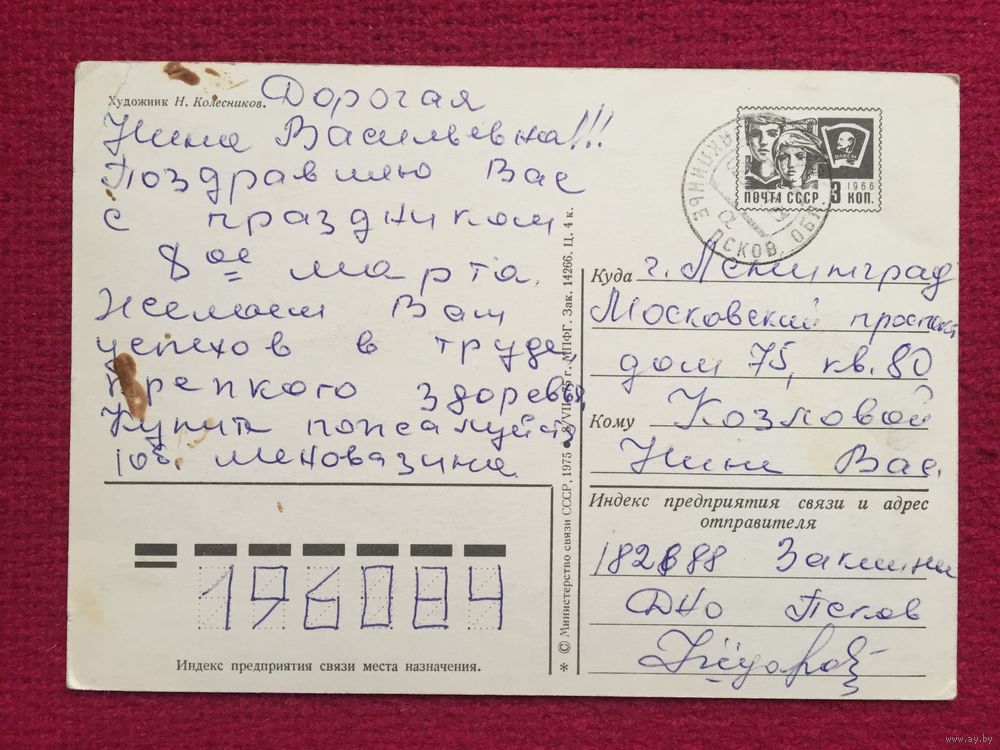 Художник Н. Колесников.
Дорогая
Нина Васильевна!!!
Поздравляю Вас
с праздником
8 ое марта.
Желаем Вам
успехов в труде,
крепкого здоровья,
Купите пожалуйста
10б. меновазина
Индекс предприятия связи места назначения.
196084
* © Министерство связи СССР, 1975 • 8/VII-75 г. МПФГ. Зак. 14266. Ц. 4 к.
ПОЧТА СССР 3 КОП.
1966
ВЛКСМ
ПСКОВ. ОБЛ
Куда г. Ленинград
Московский проспект
дом 75, кв. 80
Кому Козловой
Нине Вас.
Индекс предприятия связи и адрес
отправителя
Дно Псков
www.ay.by